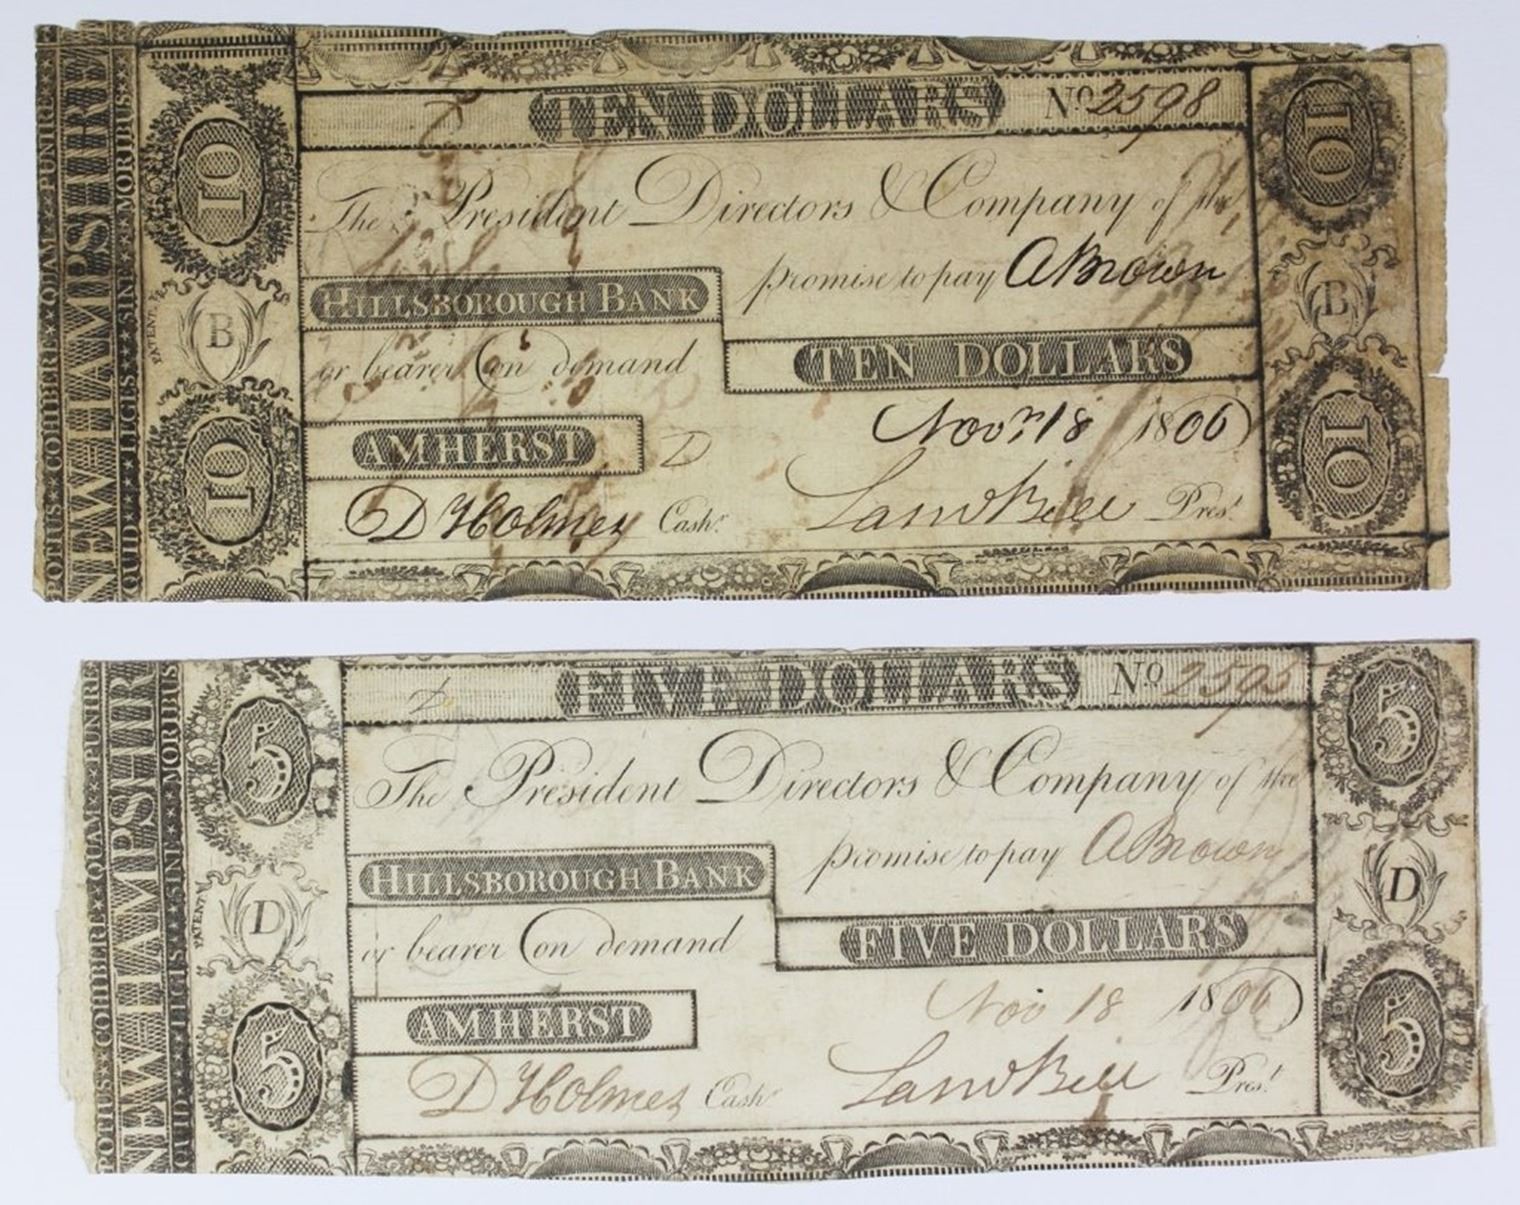 POTIUS COHIBERE QUAM PUNIRE
NEW HAMPSHIRE
QUID LEGES SINE MORIBUS
PATENT
10
B
10
TEN DOLLARS No 2598
The President Directors & Company of the
promise to pay A Brown
HILLSBOROUGH BANK
or bearer on demand
TEN DOLLARS
Novr 18 1806
AMHERST D
D Holmes Cashr.
Saml Bell Prest.
10
B
10
POTIUS COHIBERE QUAM PUNIRE
NEW HAMPSHIR
QUID LEGIS SINE MORIBUS
PATENT
5
D
5
FIVE DOLLARS No 2595
The President Directors & Company of the
promise to pay A Brown
HILLSBOROUGH BANK
or bearer on demand
FIVE DOLLARS
Nov 18 1806
AMHERST
D Holmes Cashr
Saml Bell Prest.
5
D
5